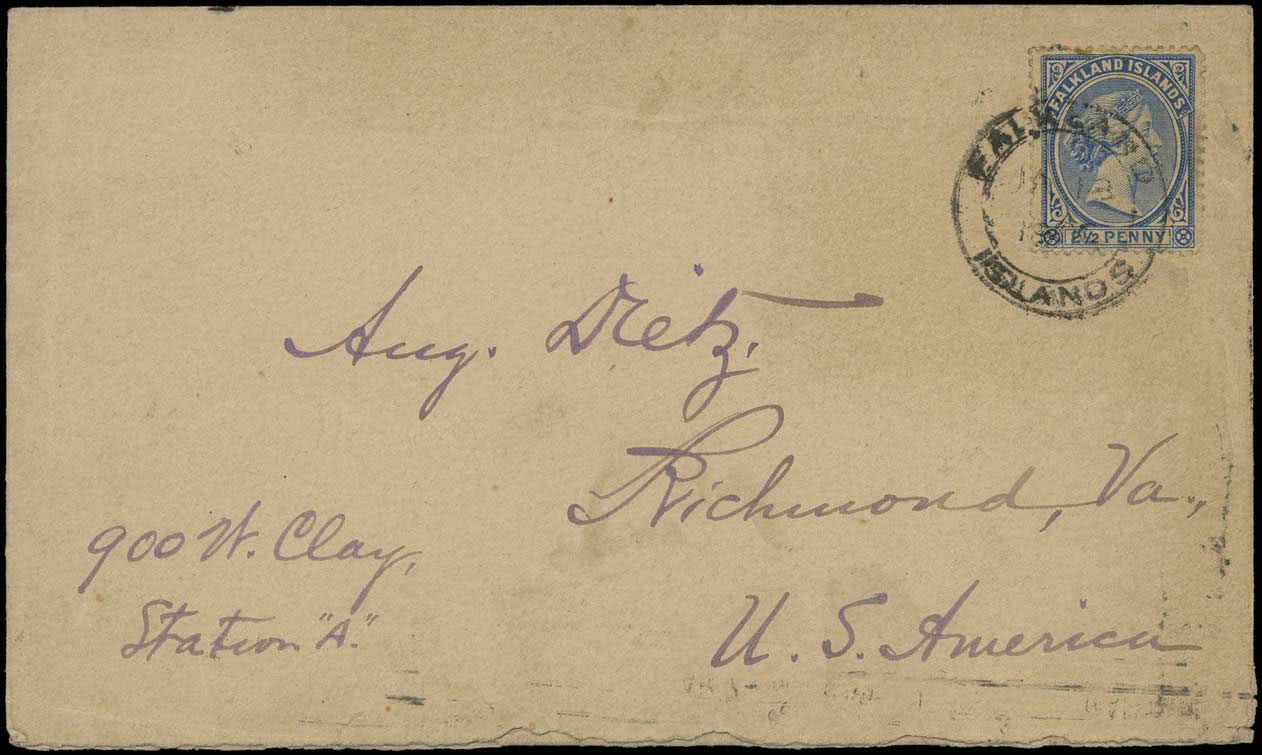 FALKLAND ISLANDS
2½ PENNY
FALKLAND
ISLANDS
Aug. Dietz.
Richmond, Va.,
900 W. Clay,
Station "A."
U. S. America